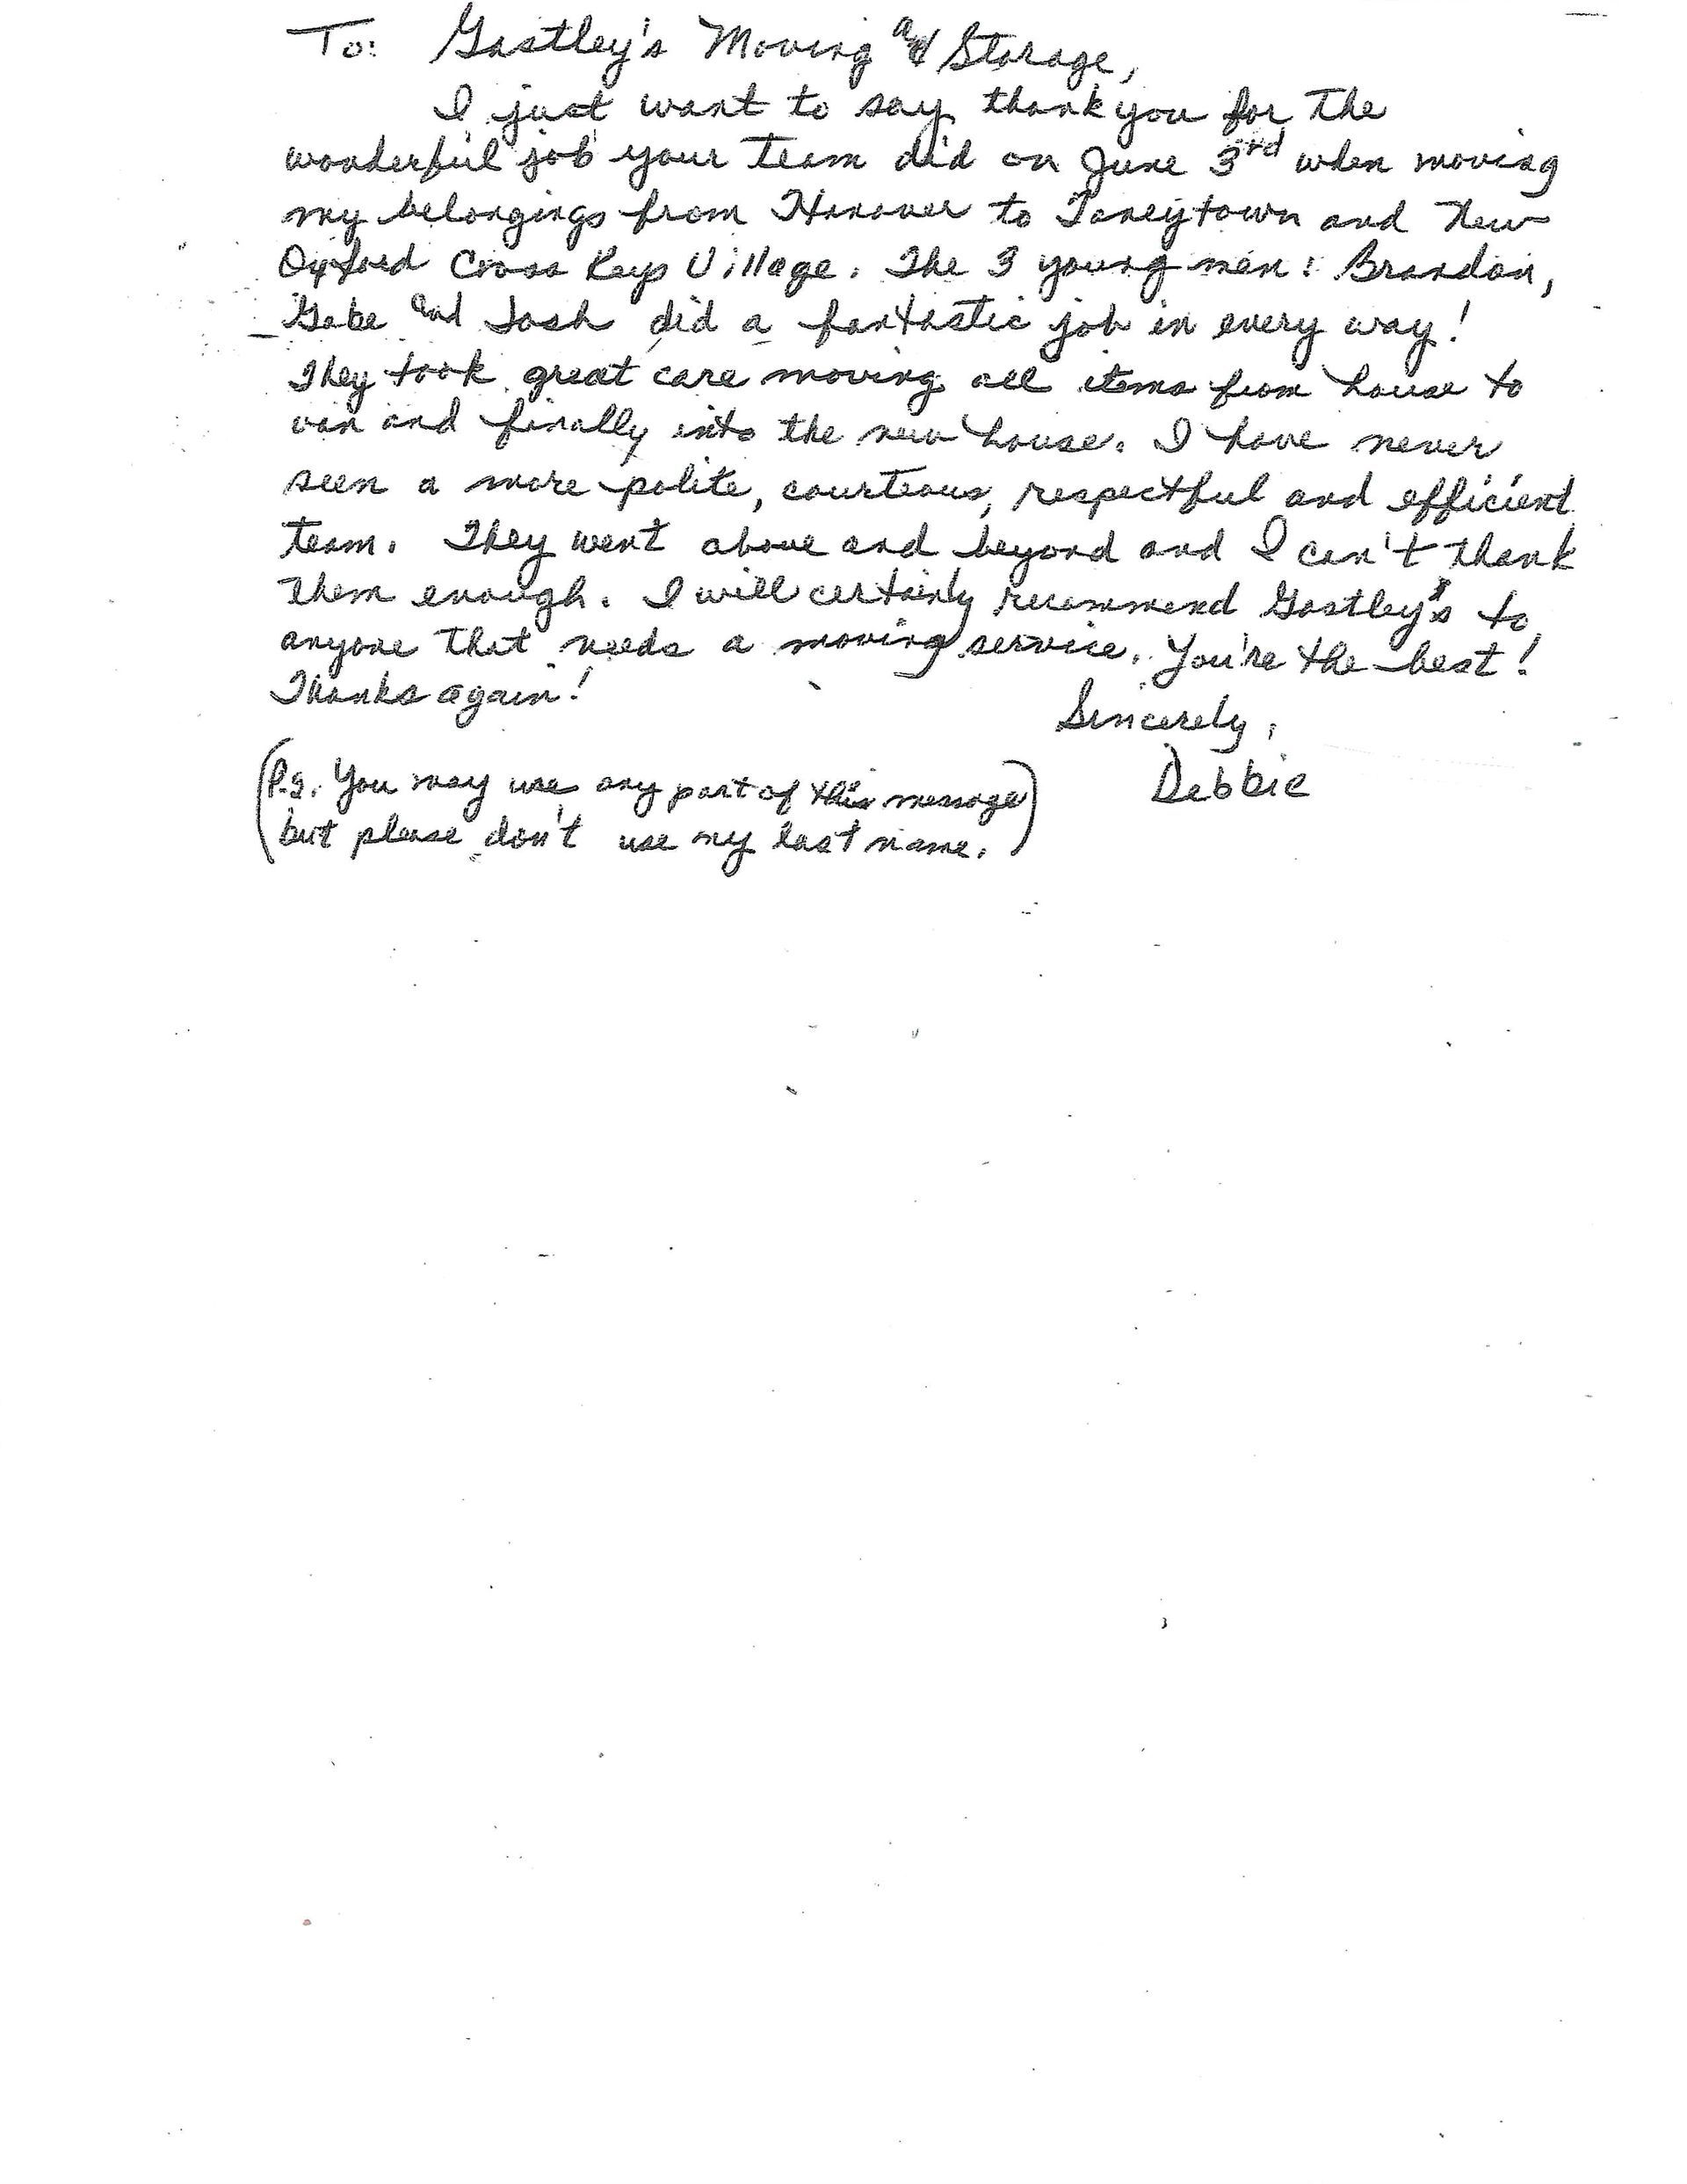 To: Gastley's Moving and Storage,
I just want to say thank you for the
wonderful job your team did on June 3rd when moving
my belongings from Hanover to Taneytown and New
Oxford Cross Keys Village. The 3 young men: Brandon,
Gabe and Josh did a fantastic job in every way!
They took great care moving all items from house to
van and finally into the new house. I have never
seen a more polite, courteous, respectful and efficient
team. They went above and beyond and I can't thank
them enough. I will certainly recommend Gastley's to
anyone that needs a moving service. You're the best!
Thanks again!
Sincerely,
Debbie
(P.S. You may use any part of this message
but please don't use my last name.)